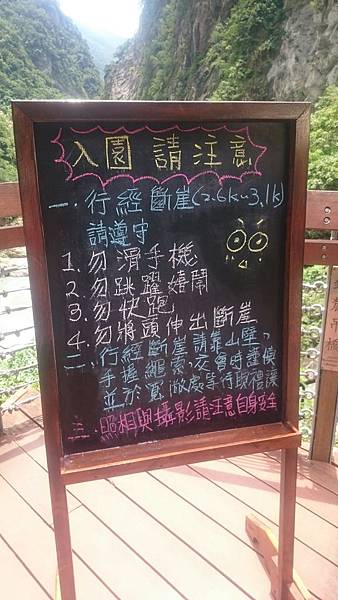 入園 請注意
一.行經斷崖(2.6k~3.1k)
請遵守
1.勿滑手機
2.勿跳躍嬉鬧
3.勿快跑
4.勿將頭伸出斷崖
二.行經斷崖,請靠山壁,
手握繩索,交會時謹慎
並於寬敞處等待取禮讓
三.照相與攝影請注意自身安全